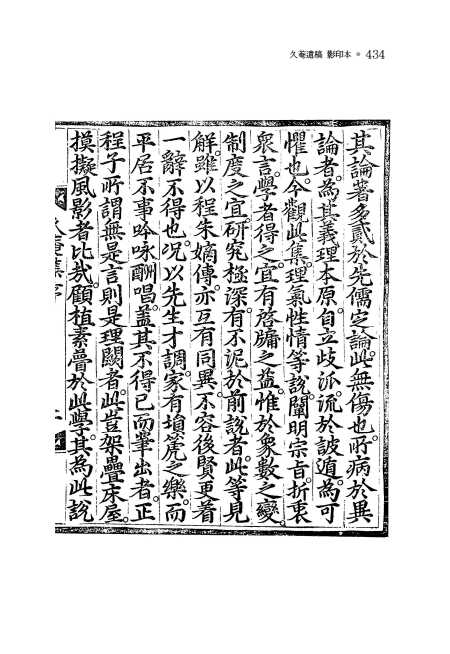 久菴遺稿 影印本 ● 434
其論著多貳於先儒定論此無傷也所病於異
論者為其義理本原自立歧派流於詖遁為可
懼也今觀此集理氣性情等說闡明宗旨折衷
衆言學者得之宜有啓牖之益惟於象數之變
制度之宜研究極深有不泥於前說者此等見
解雖以程朱嫡傳亦互有同異不容後賢更着
一辭不得也况以先生才調家有塤箎之樂而
平居不事吟咏酬唱盖其不得已而畢出者正
程子所謂無是言則是理闕者此豈架疊床屋
摸擬風影者比哉顧植素瞢於此學其為此說
菴集序